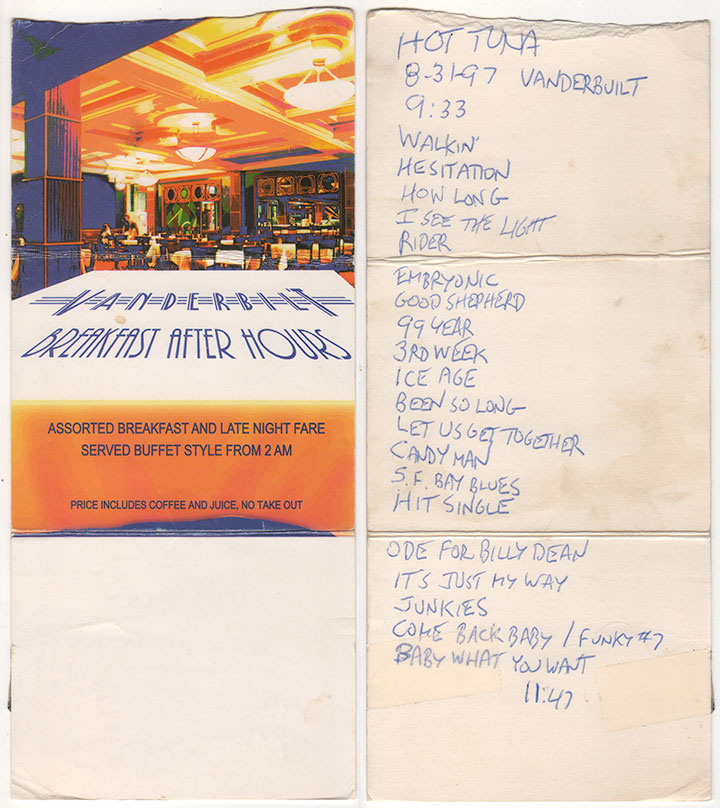 VANDERBILT
BREAKFAST AFTER HOURS
ASSORTED BREAKFAST AND LATE NIGHT FARE
SERVED BUFFET STYLE FROM 2 AM
PRICE INCLUDES COFFEE AND JUICE, NO TAKE OUT
HOT TUNA
8-31-97 VANDERBUILT
9:33
WALKIN'
HESITATION
HOW LONG
I SEE THE LIGHT
RIDER
EMBRYONIC
GOOD SHEPHERD
99 YEAR
3RD WEEK
ICE AGE
BEEN SO LONG
LET US GET TOGETHER
CANDY MAN
S.F. BAY BLUES
HIT SINGLE
ODE FOR BILLY DEAN
IT'S JUST MY WAY
JUNKIES
COME BACK BABY / FUNKY #7
BABY WHAT YOU WANT
11:47